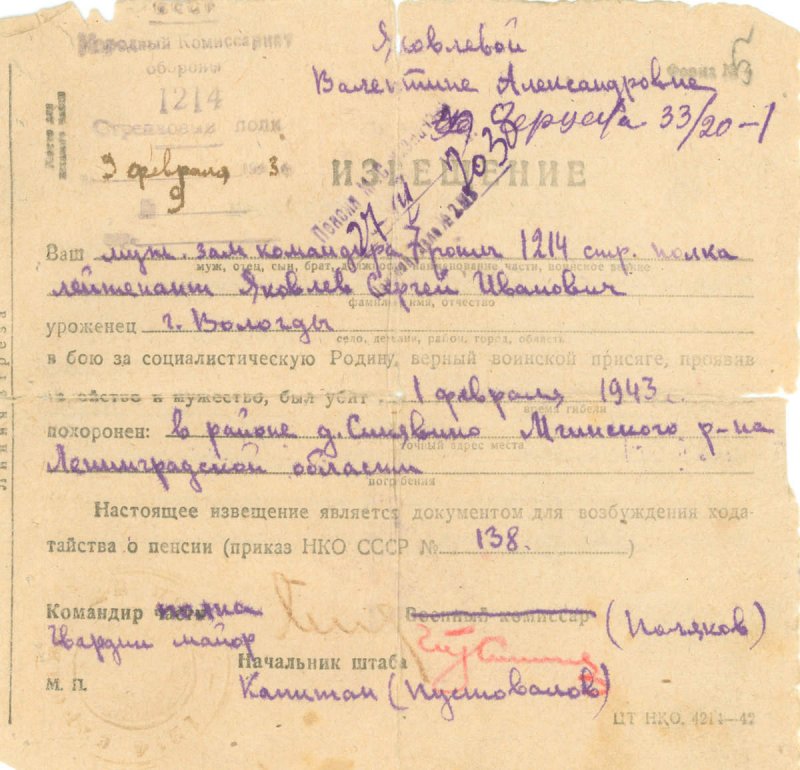 СССР
Народный Комиссариат
обороны
1214
Стрелковый полк
9 февраля 3
9
Яковлевой
Валентине Александровне
Форма № 5
33/20-1
27 III
ИЗВЕЩЕНИЕ
Ваш муж. зам командира 1214 стр. полка
муж, отец, сын, брат, наименование части, воинское звание
лейтенант Яковлев Сергей Иванович
фамилия, имя, отчество
уроженец г. Вологды
село, деревня, район, город, область
в бою за социалистическую Родину, верный воинской присяге, проявив
и мужество, был убит 1 февраля 1943 г.
время гибели
похоронен: в районе д. Синявино Мгинского р-на
точный адрес места
Ленинградской области
погребения
Настоящее извещение является документом для возбуждения хода-
тайства о пенсии (приказ НКО СССР № 138.)
Командир полка
Военный комиссар (Поляков)
Гвардии майор
Начальник штаба
М. П.
Капитан (Пустовалов)
ЦТ НКО. 4214—42
Линия отреза